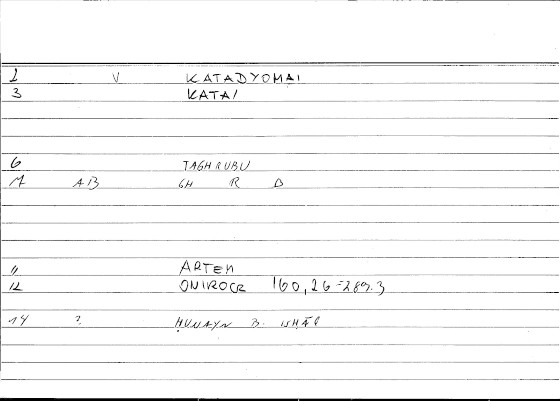 2 V KATADYOMAI
3 KATAI
6 TAGHRUBU
7 AB GH R B
11 ARTEM
12 ONIROCR 160,26 = 289.3
14 ? ḤUNAYN B. ISḤĀQ